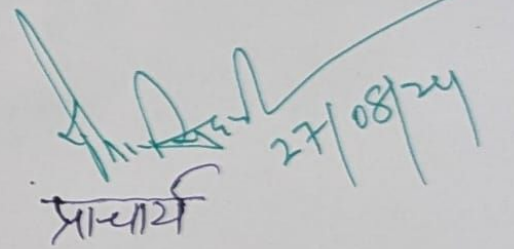 27/08/24
प्राचार्य